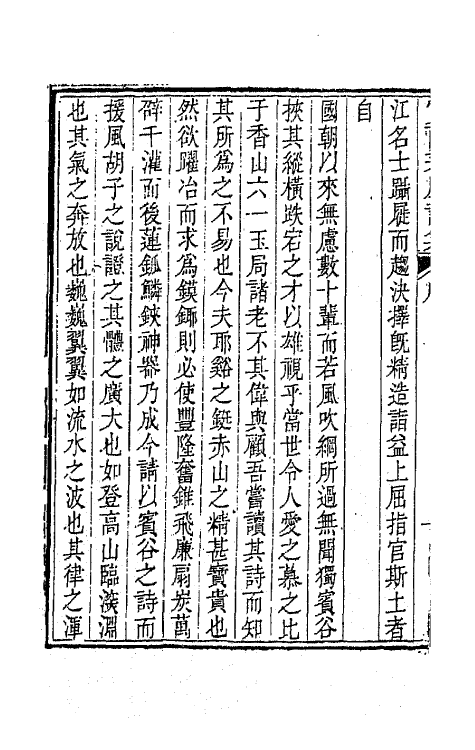 江名士躡屣而趨決擇旣精造詣益上屈指官斯土者
自
國朝以來無慮數十輩而若風吹網所過無聞獨賓谷
挾其縱橫跌宕之才以雄視乎當世令人愛之慕之比
于香山六一玉局諸老不其偉與顧吾嘗讀其詩而知
其所爲之不易也今夫耶谿之鋌赤山之精甚寶貴也
然欲躍冶而求爲鏌鋣則必使豐隆奮錐飛廉扇炭萬
辟千灌而後蓮鈲鱗鋏神器乃成今請以賓谷之詩而
援風胡子之說證之其體之廣大也如登高山臨淡淵
也其氣之奔放也巍巍翼翼如流水之波也其律之渾